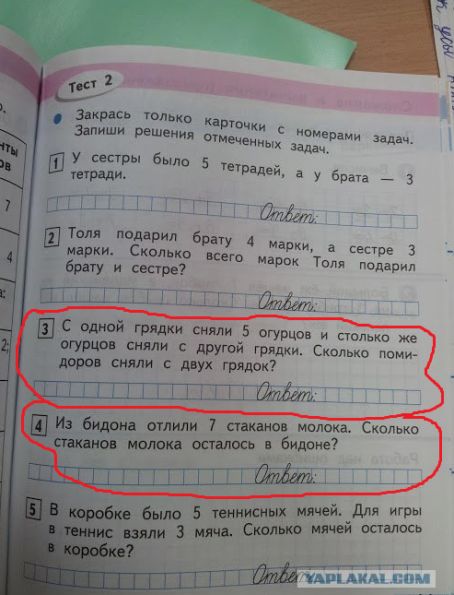 Тест 2
Закрась только карточки с номерами задач.
Запиши решения отмеченных задач.
1 У сестры было 5 тетрадей, а у брата — 3
тетради.
Ответ:
2 Толя подарил брату 4 марки, а сестре 3
марки. Сколько всего марок Толя подарил
брату и сестре?
Ответ:
3 С одной грядки сняли 5 огурцов и столько же
огурцов сняли с другой грядки. Сколько поми-
доров сняли с двух грядок?
Ответ:
4 Из бидона отлили 7 стаканов молока. Сколько
стаканов молока осталось в бидоне?
Ответ:
5 В коробке было 5 теннисных мячей. Для игры
в теннис взяли 3 мяча. Сколько мячей осталось
в коробке?
Ответ
7
4
2;
YAPLAKAL.COM